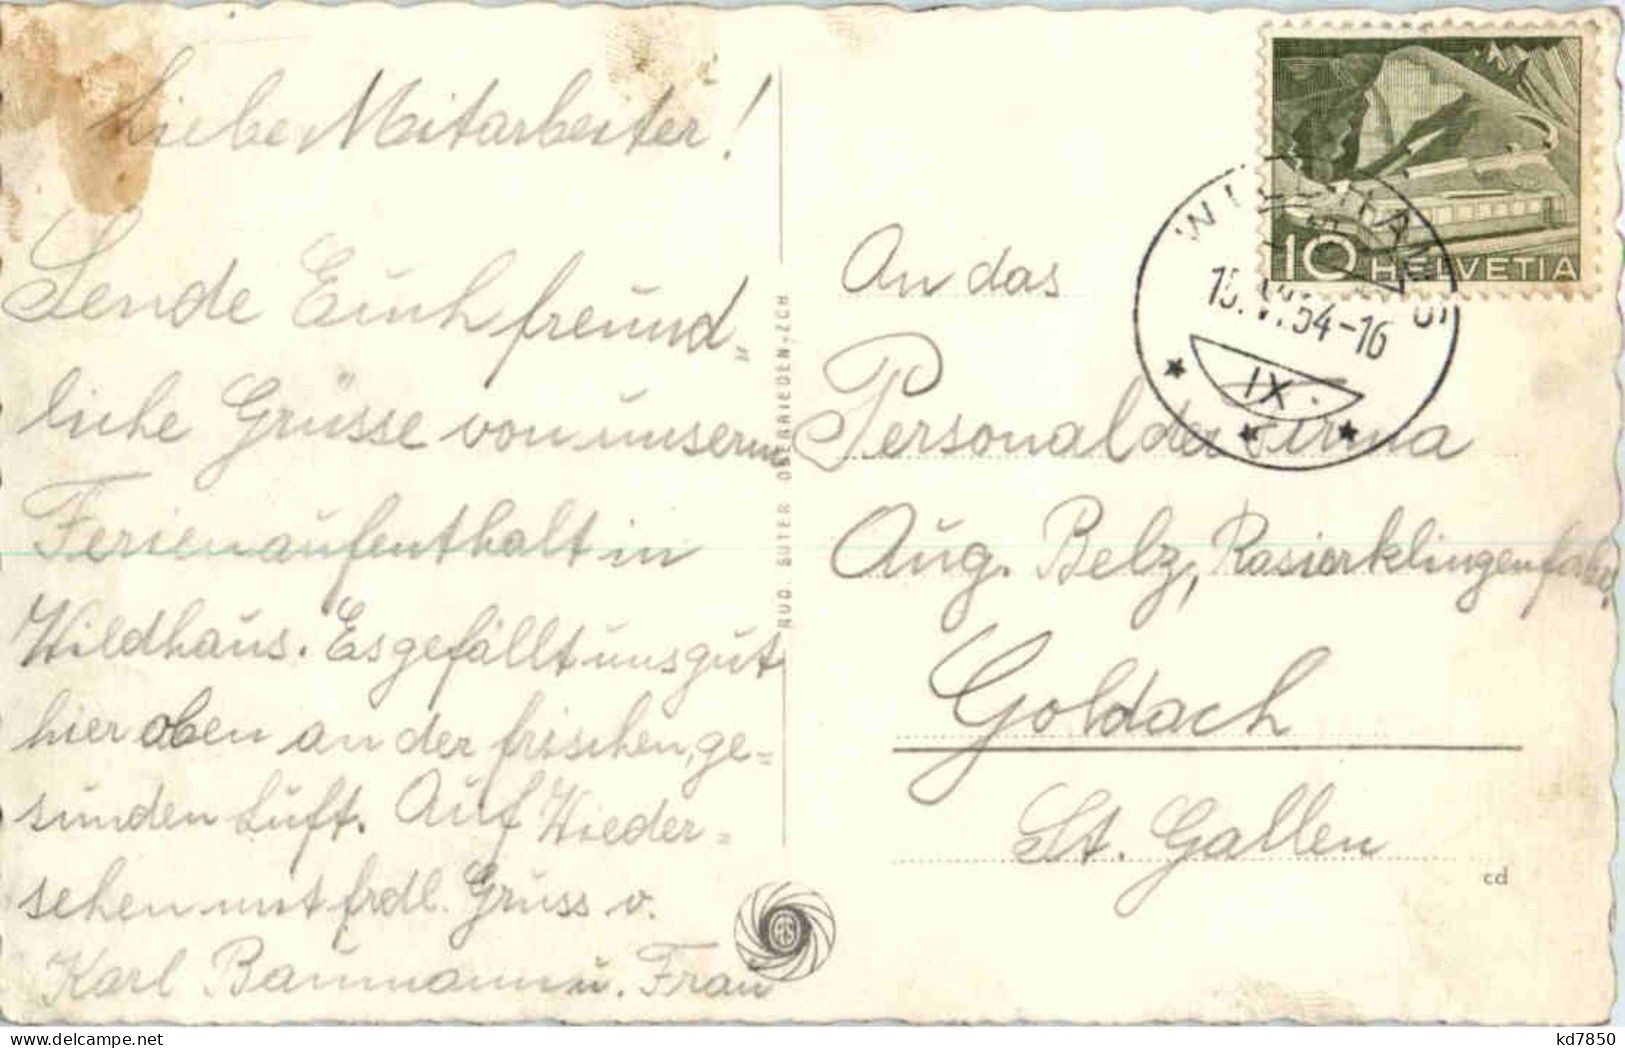 Liebe Mitarbeiter!
Sende Euch freund-
liche Grüsse von unserm
Ferienaufenthalt in
Wildhaus. Es gefällt uns gut
hier oben an der frischen, ge=
sunden Luft. Auf Wieder=
sehen mit frdl. Gruss v.
Karl Baumann u. Frau
RUD. SUTER OBERRIEDEN-ZCH
RS
10 HELVETIA
WILDHAUS
15. 54-16
IX
An das
Personal der Firma
Aug. Belz, Rasierklingenfabr.
Goldach
St. Gallen
cd
kd7850